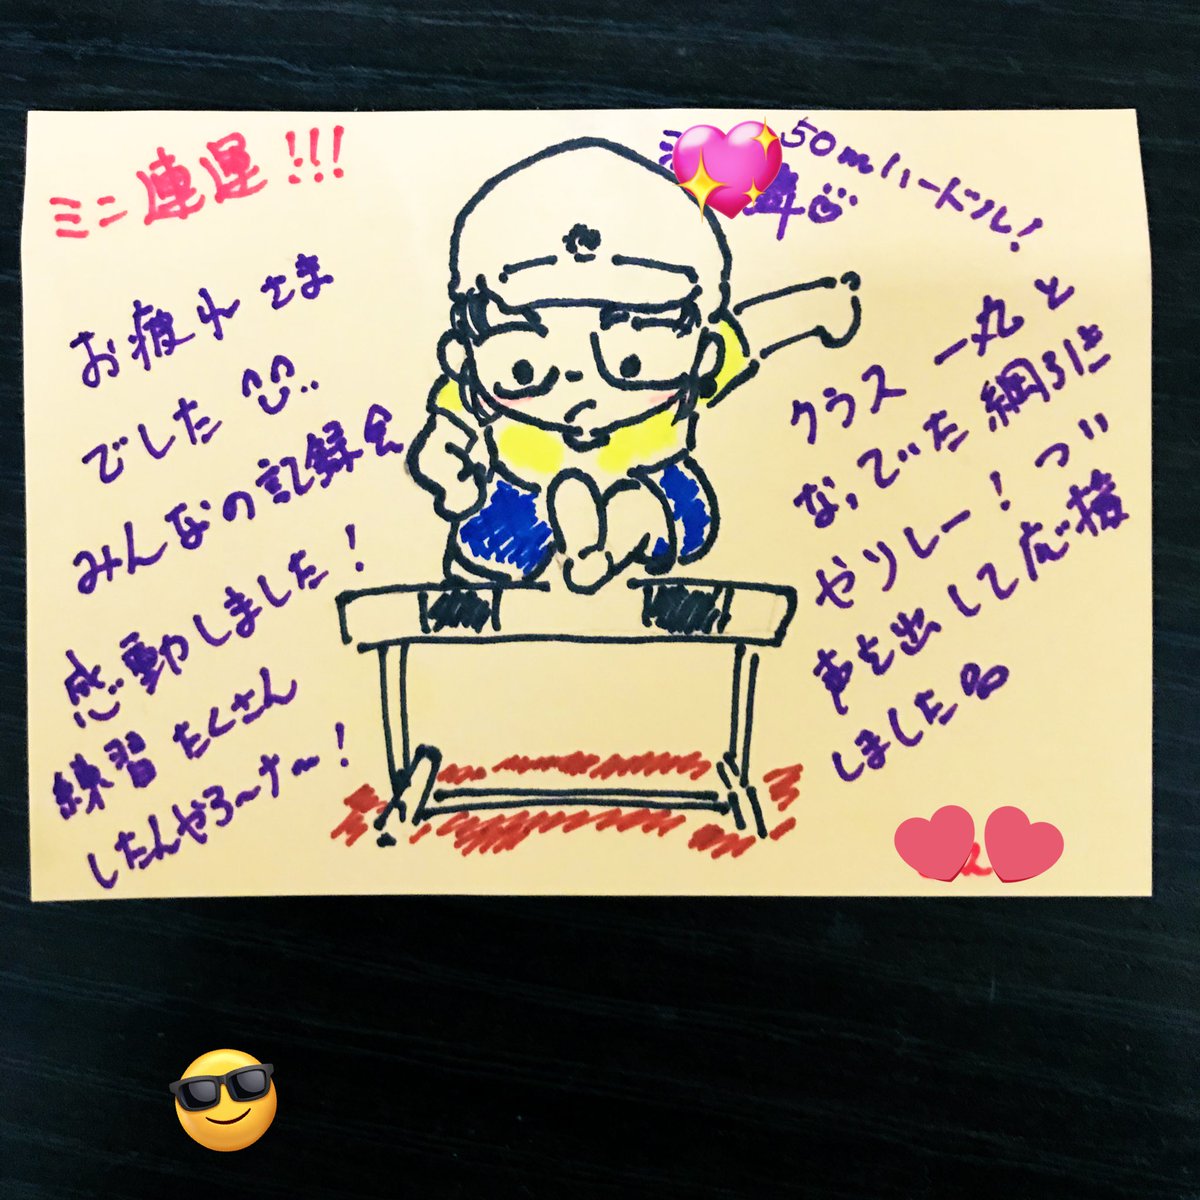 ミニ連運!!!
お疲れさま
でした
みんなの記録会
感動しました!
練習たくさん
したんやろ〜ナ〜!
50mハードル!
クラス一丸と
なってた綱引き
やりしー!つ
声を出して応援
しました